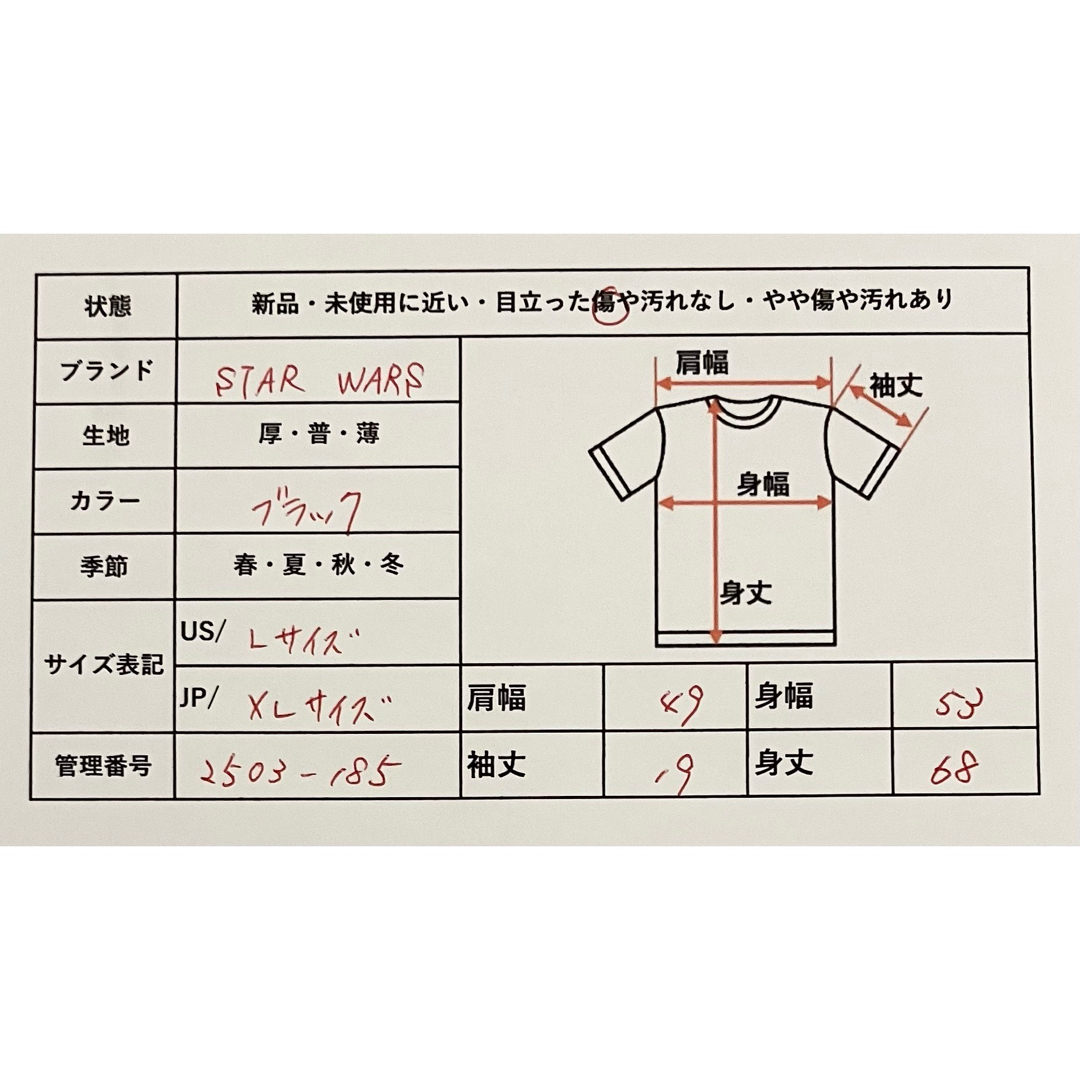 状態 新品・未使用に近い・目立った傷や汚れなし・やや傷や汚れあり
ブランド STAR WARS
生地 厚・普・薄
カラー ブラック
季節 春・夏・秋・冬
サイズ表記 US/ Lサイズ
JP/ XLサイズ
管理番号 2503-185
肩幅
袖丈
身幅
身丈
肩幅 49 身幅 53
袖丈 19 身丈 68